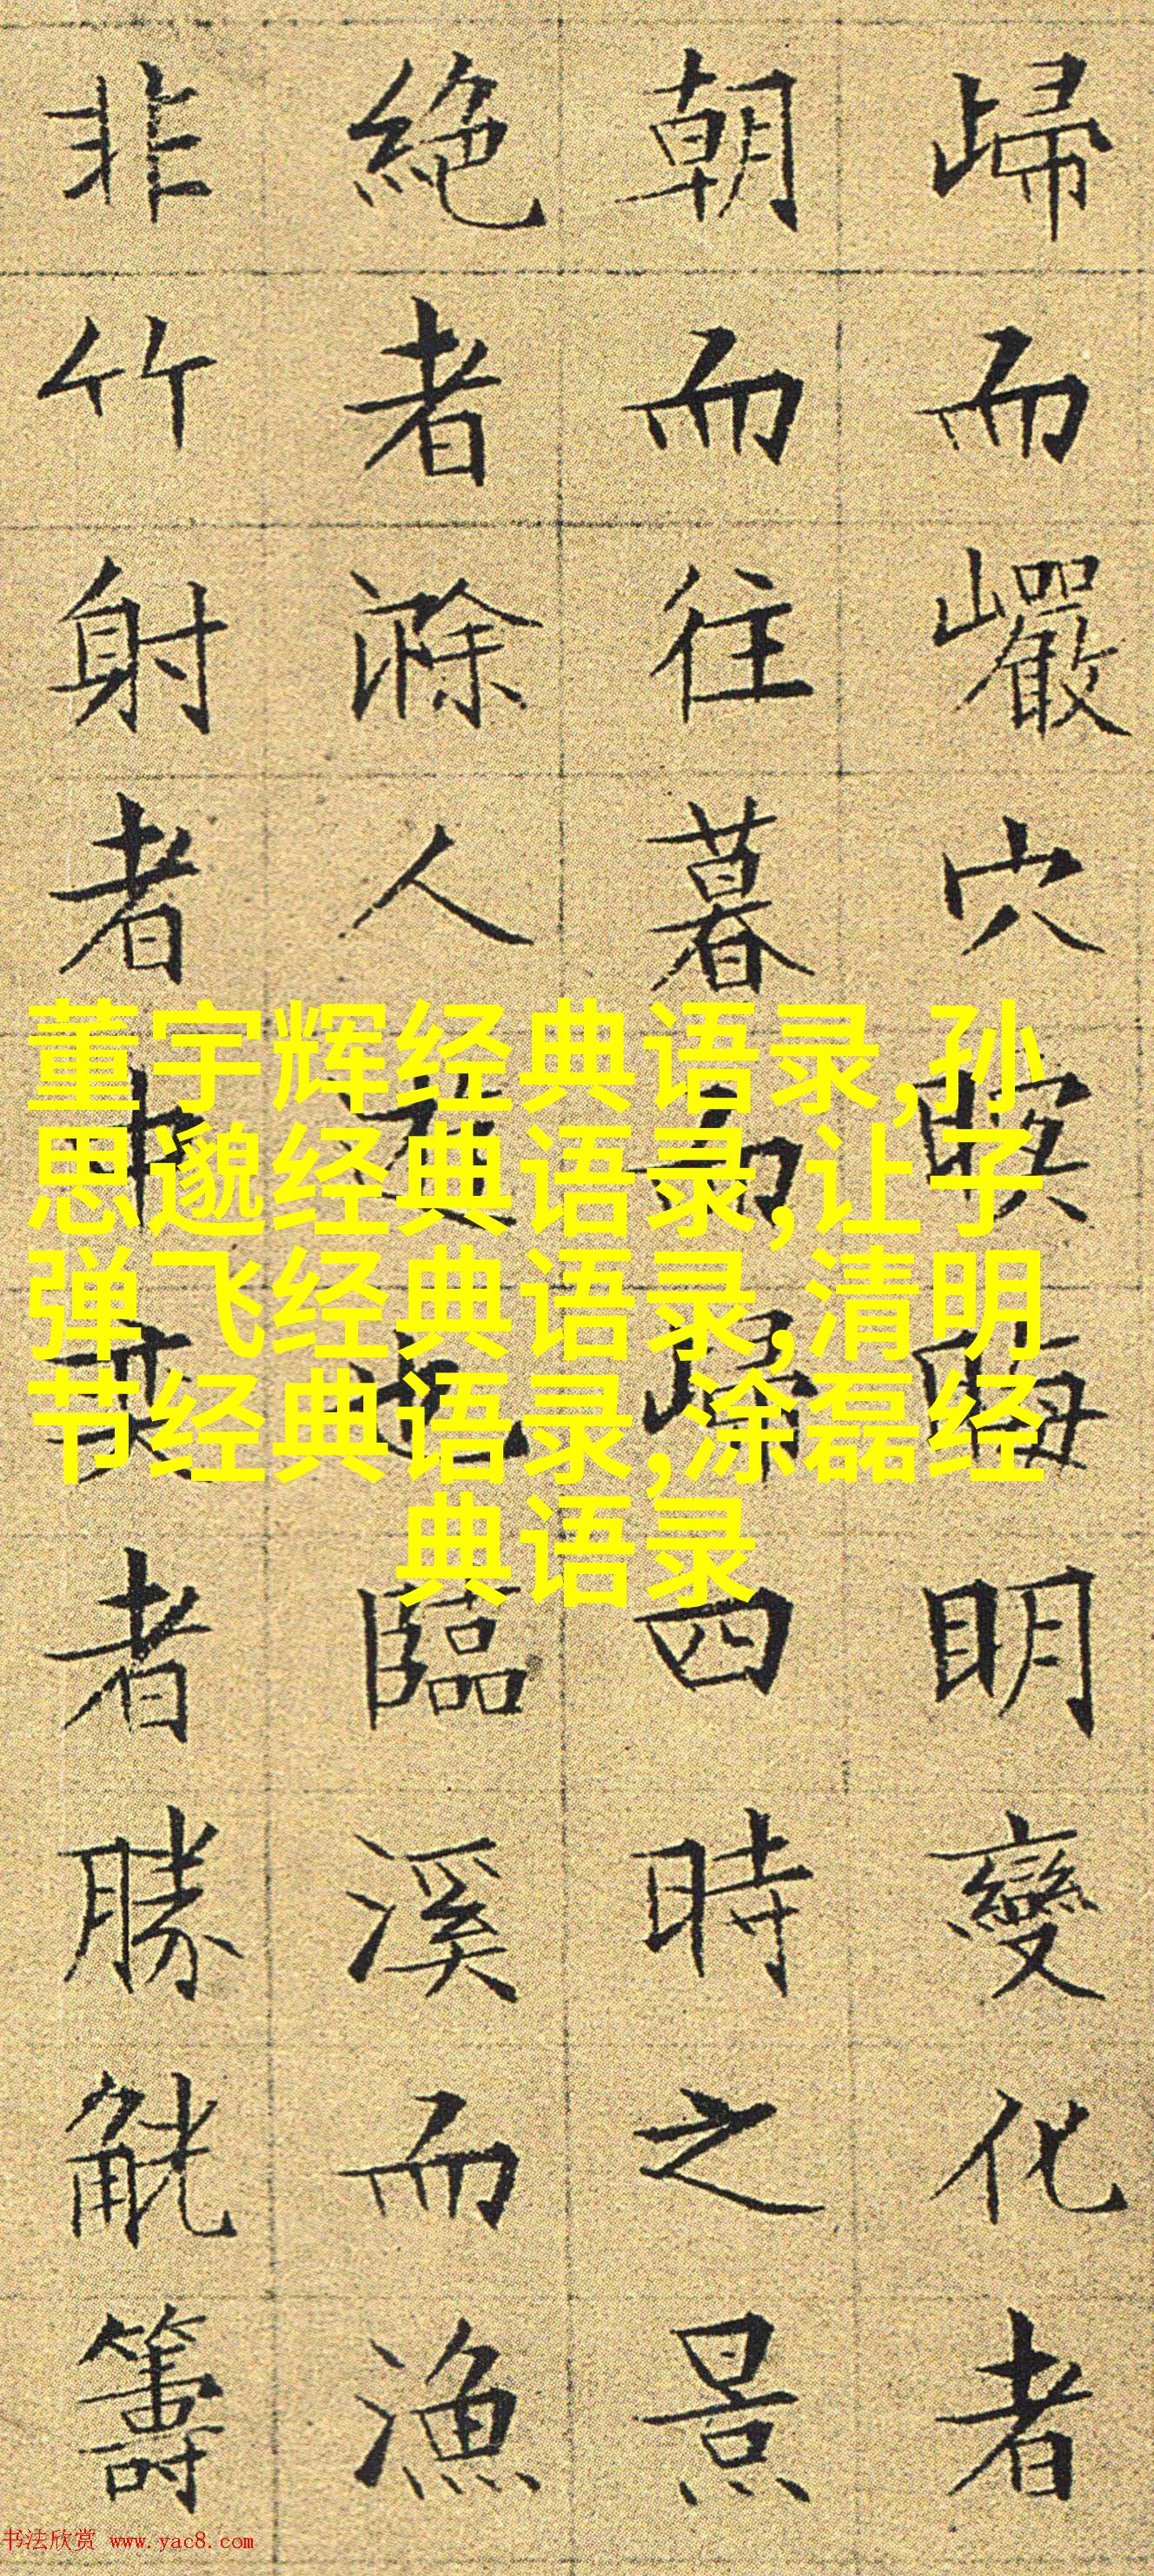 歸而巖穴暝晦明變化者
朝而往暮而歸四時之景
絕者滁人遊也臨溪而漁
非竹射者中者勝觥籌
董宇辉经典语录,孙
思邈经典语录,让子
弹飞经典语录,清明
节经典语录,涂磊经
典语录
书法欣赏 www.yac8.com